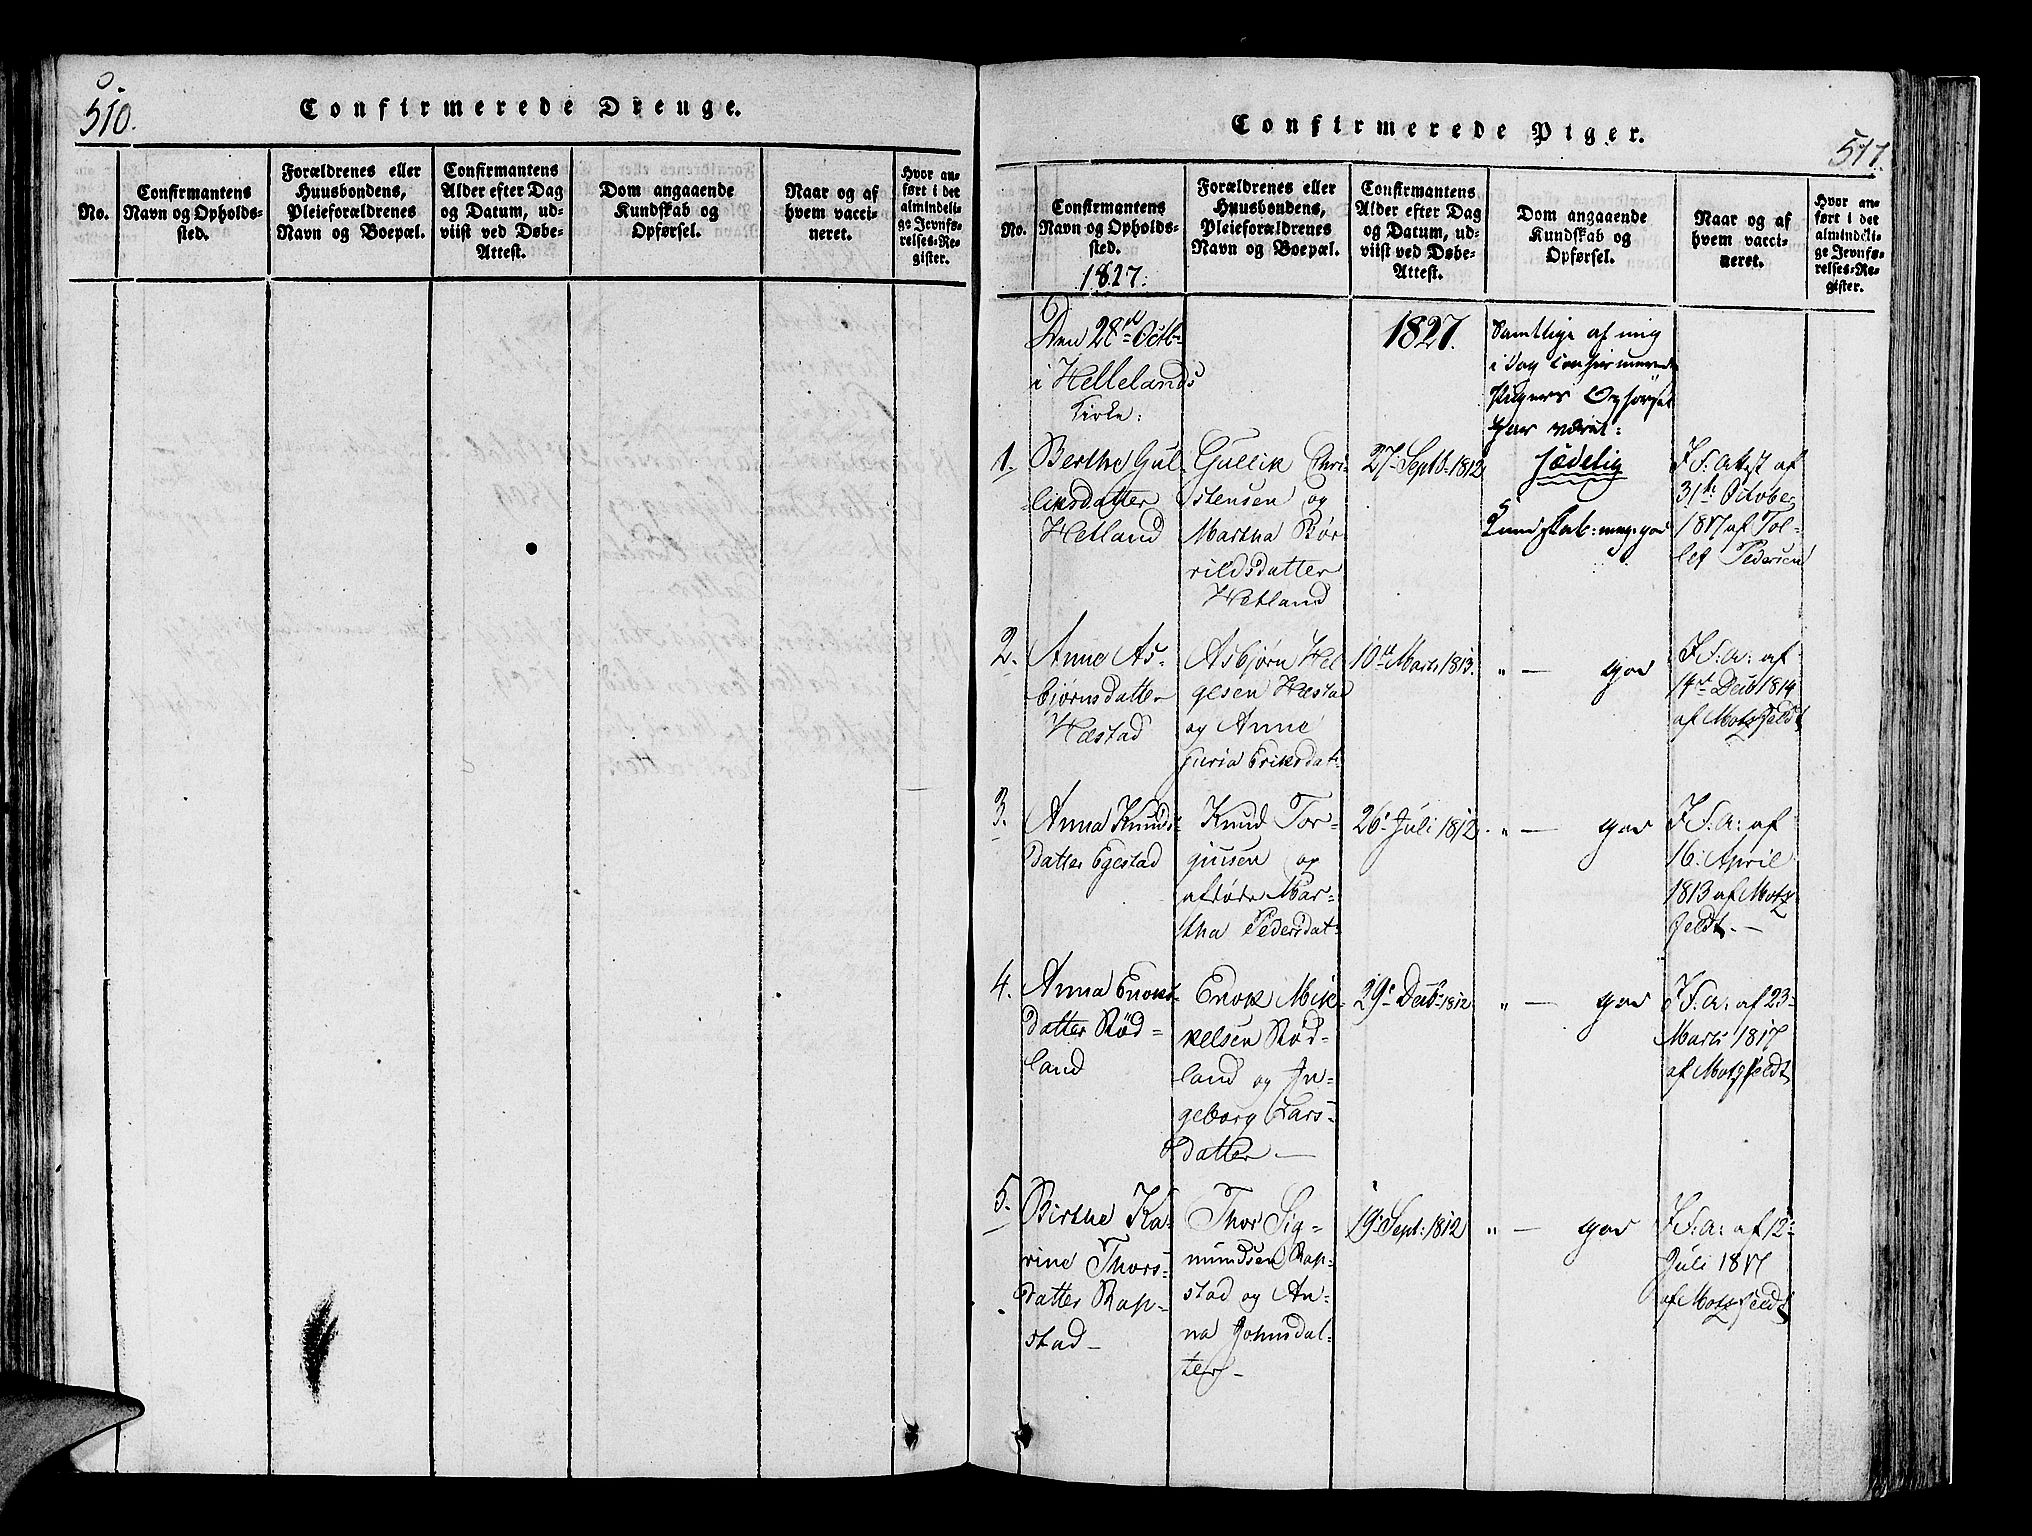 510.
Confirmerede Drenge.
No.
Confirmantens
Navn og Opholds-
sted.
Forældrenes eller
Huusbondens,
Pleieforældrenes
Navn og Boepæl.
Confirmantens
Alder efter Dag
og Datum, ud-
viist ved Døbe-
Attest.
Dom angaaende
Kundskab og
Opførsel.
Naar og af
hvem vacci-
neret.
Hvor an-
ført i det
almindeli-
ge Jevnfø-
relses-Re-
gister.
Confirmerede Piger.
511.
No.
Confirmantens
Navn og Opholds-
sted.
1827.
Forældrenes eller
Huusbondens,
Pleieforældrenes
Navn og Boepæl.
Confirmantens
Alder efter Dag
og Datum, ud-
viist ved Døbe-
Attest.
Dom angaaende
Kundskab og
Opførsel.
Naar og af
hvem vacci-
neret.
Hvor an-
ført i det
almindeli-
ge Jevnfø-
relses-Re-
gister.
Den 28de Octb-
i Hellelands
Kirke:
1827.
Samtlige af mig
i Dag confirmerede
Pigers Opførsel
har været:
sædelig
Kundskab: meg: god
1.
Berthe Gul-
liksdatter
Hetland
Gullik Chri-
stensen og
Martha Bør-
rildsdatter
Hetland
27: Septb: 1812
F. S: Attest af
31te October
1817 af Tol-
lef Pedersen
2.
Anne As-
bjørnsdatter
Hæstad
Asbjørn Hel
gesen Hæstad
og Anne
Guria Eriksdat:
10de Marts 1813.
" — god
F. S: a: af
14de Decb 1814
af Motzfeldt
3.
Anna Knuds-
datter Egestad
Knud Tor-
gjusen og
afdøde Mar-
tha Pedersdat:
26: Juli 1812.
" — god
F. S: a: af
16: April
1813 af Motz-
feldt.—
4.
Anna Enoks-
datter Rød-
land
Enok Mik-
kelsen Rød-
land og In-
geborg Lars-
datter.—
29: Decbr 1812
" — god
F. S: a: af 23-
Marts 1817
af Motzfeldt
5.
Birthe Ka-
rine Thors-
datter Rap-
stad—
Thor Sig-
mundsen Rap-
stad og An-
na Johnsdat-
ter—
19: Sept: 1812
" — god
F. S: a: af 12-
Juli 1817
af Motzfeldt